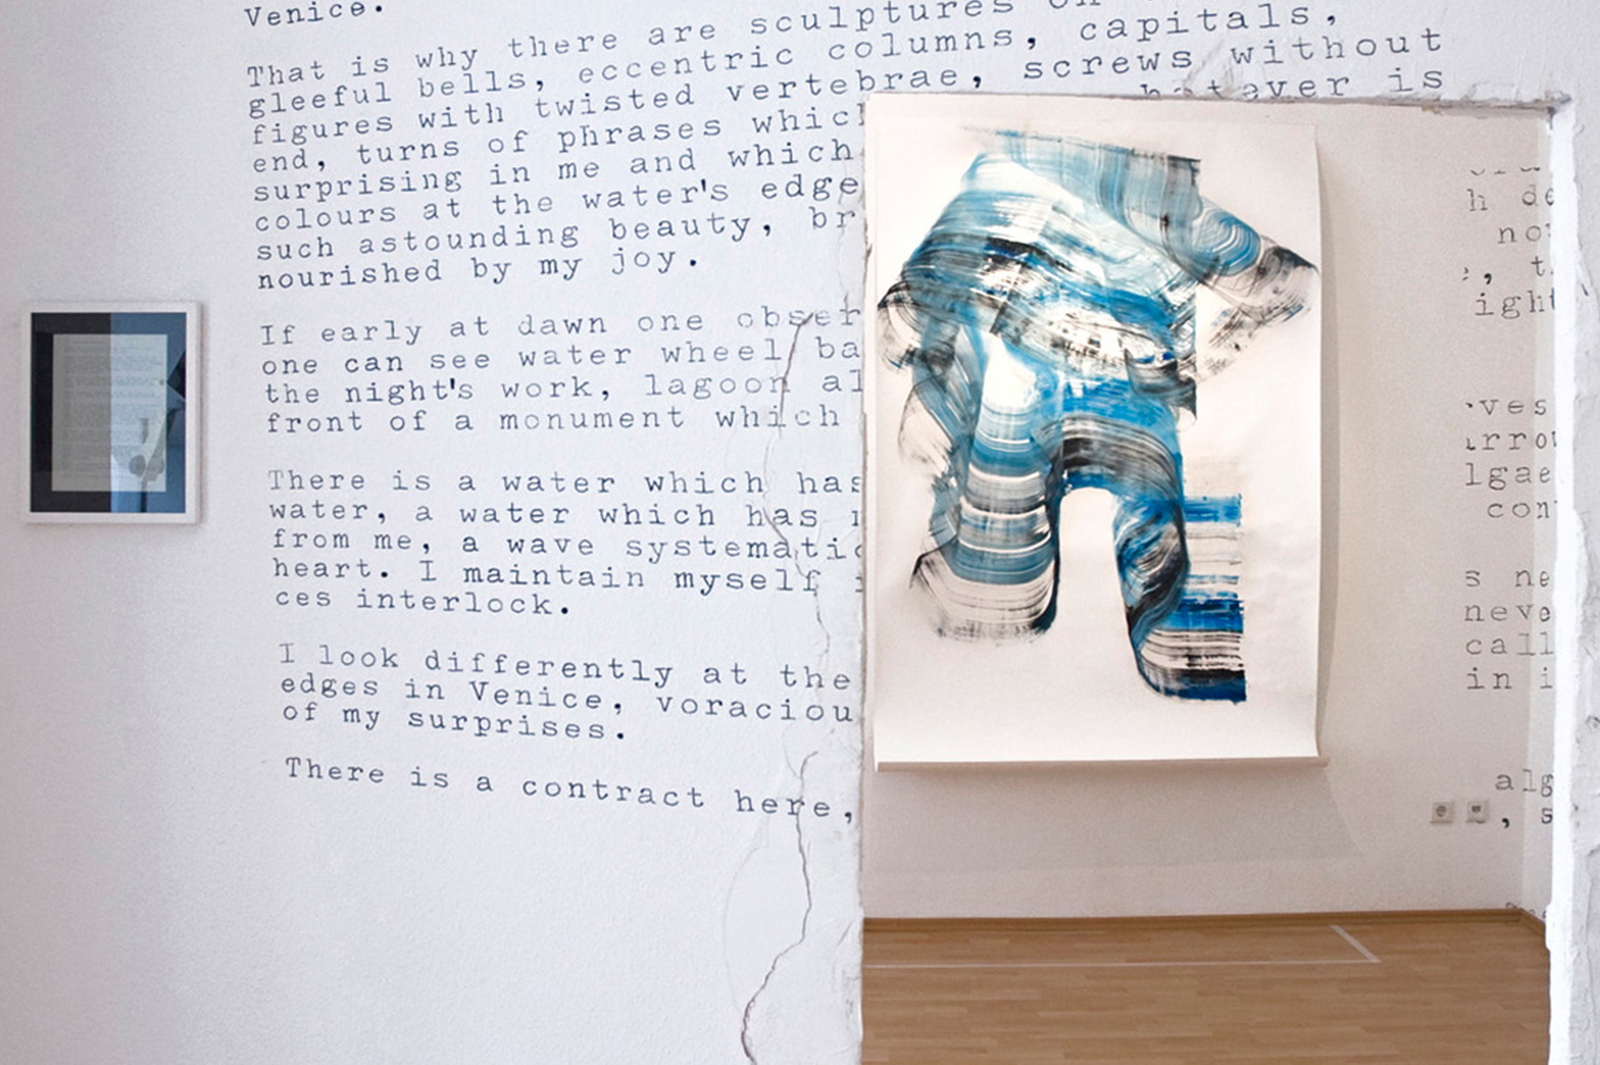 Venice.
That is why there are sculptures
gleeful bells, eccentric columns, capitals,
figures with twisted vertebrae, screws without
end, turns of phrases which is
surprising in me and which
colours at the water's edge
such astounding beauty, br
nourished by my joy.
If early at dawn one obser
one can see water wheel ba
the night's work, lagoon al
front of a monument which
There is a water which has
water, a water which has
from me, a wave systematic
heart. I maintain myself
ces interlock.
I look differently at the
edges in Venice, voraciou
of my surprises.
There is a contract here,
h de
no
, t
ight
ves
rrow
lgae
con
s ne
neve
call
in i
alg
, s